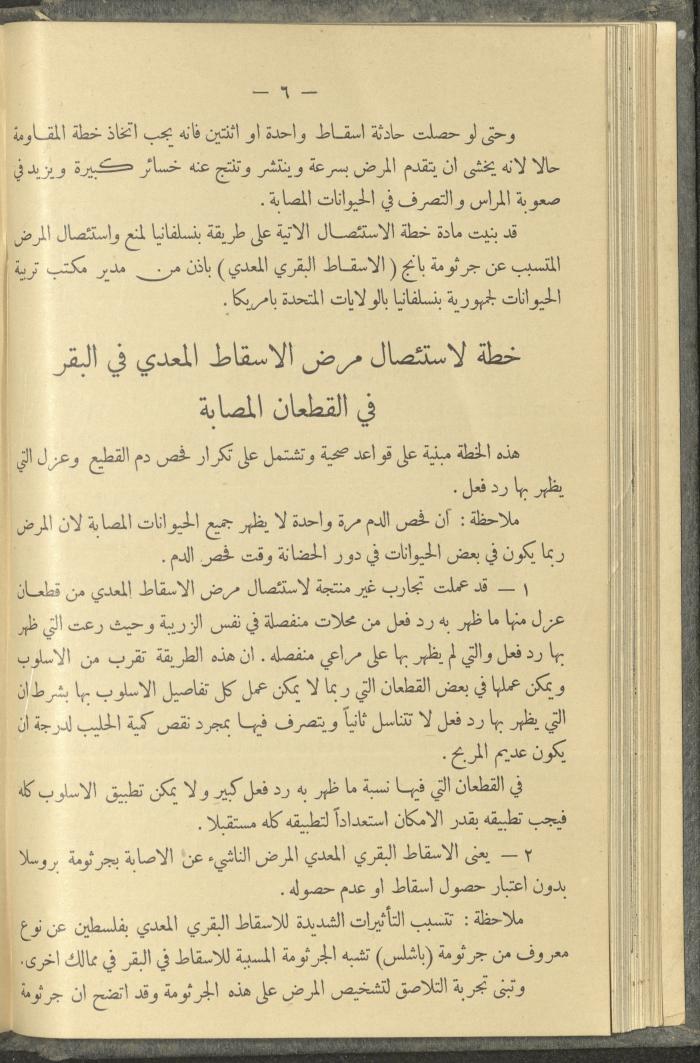 — ٦ —
وحتى لو حصلت حادثة اسقاط واحدة او اثنتين فانه يجب اتخاذ خطة المقاومة
حالا لانه يخشى ان يتقدم المرض بسرعة وينتشر وتنتج عنه خسائر كبيرة ويزيد في
صعوبة المراس والتصرف في الحيوانات المصابة .
قد بنيت مادة خطة الاستئصال الاتية على طريقة بنسلفانيا لمنع واستئصال المرض
المتسبب عن جرثومة بانج ( الاسقاط البقري المعدي ) باذن من مدير مكتب تربية
الحيوانات لجمهورية بنسلفانيا بالولايات المتحدة بامريكا .
خطة لاستئصال مرض الاسقاط المعدي في البقر
في القطعان المصابة
هذه الخطة مبنية على قواعد صحية وتشتمل على تكرار فحص دم القطيع وعزل التي
يظهر بها رد فعل .
ملاحظة : ان فحص الدم مرة واحدة لا يظهر جميع الحيوانات المصابة لان المرض
ربما يكون في بعض الحيوانات في دور الحضانة وقت فحص الدم .
١ — قد عملت تجارب غير منتجة لاستئصال مرض الاسقاط المعدي من قطعان
عزل منها ما ظهر به رد فعل من محلات منفصلة في نفس الزريبة وحيث رعت التي ظهر
بها رد فعل والتي لم يظهر بها على مراعي منفصله . ان هذه الطريقة تقرب من الاسلوب
ويمكن عملها في بعض القطعان التي ربما لا يمكن عمل كل تفاصيل الاسلوب بها بشرط ان
التي يظهر بها رد فعل لا تتناسل ثانياً ويتصرف فيها بمجرد نقص كمية الحليب لدرجة ان
يكون عديم المربح .
في القطعان التي فيها نسبة ما ظهر به رد فعل كبير ولا يمكن تطبيق الاسلوب كله
فيجب تطبيقه بقدر الامكان استعداداً لتطبيقه كله مستقبلا .
٢ — يعنى الاسقاط البقري المعدي المرض الناشيء عن الاصابة بجرثومة بروسلا
بدون اعتبار حصول اسقاط او عدم حصوله .
ملاحظة : تتسبب التأثيرات الشديدة للاسقاط البقري المعدي بفلسطين عن نوع
معروف من جرثومة (باشلس) تشبه الجرثومة المسببة للاسقاط في البقر في ممالك اخرى .
وتبنى تجربة التلاصق لتشخيص المرض على هذه الجرثومة وقد اتضح ان جرثومة